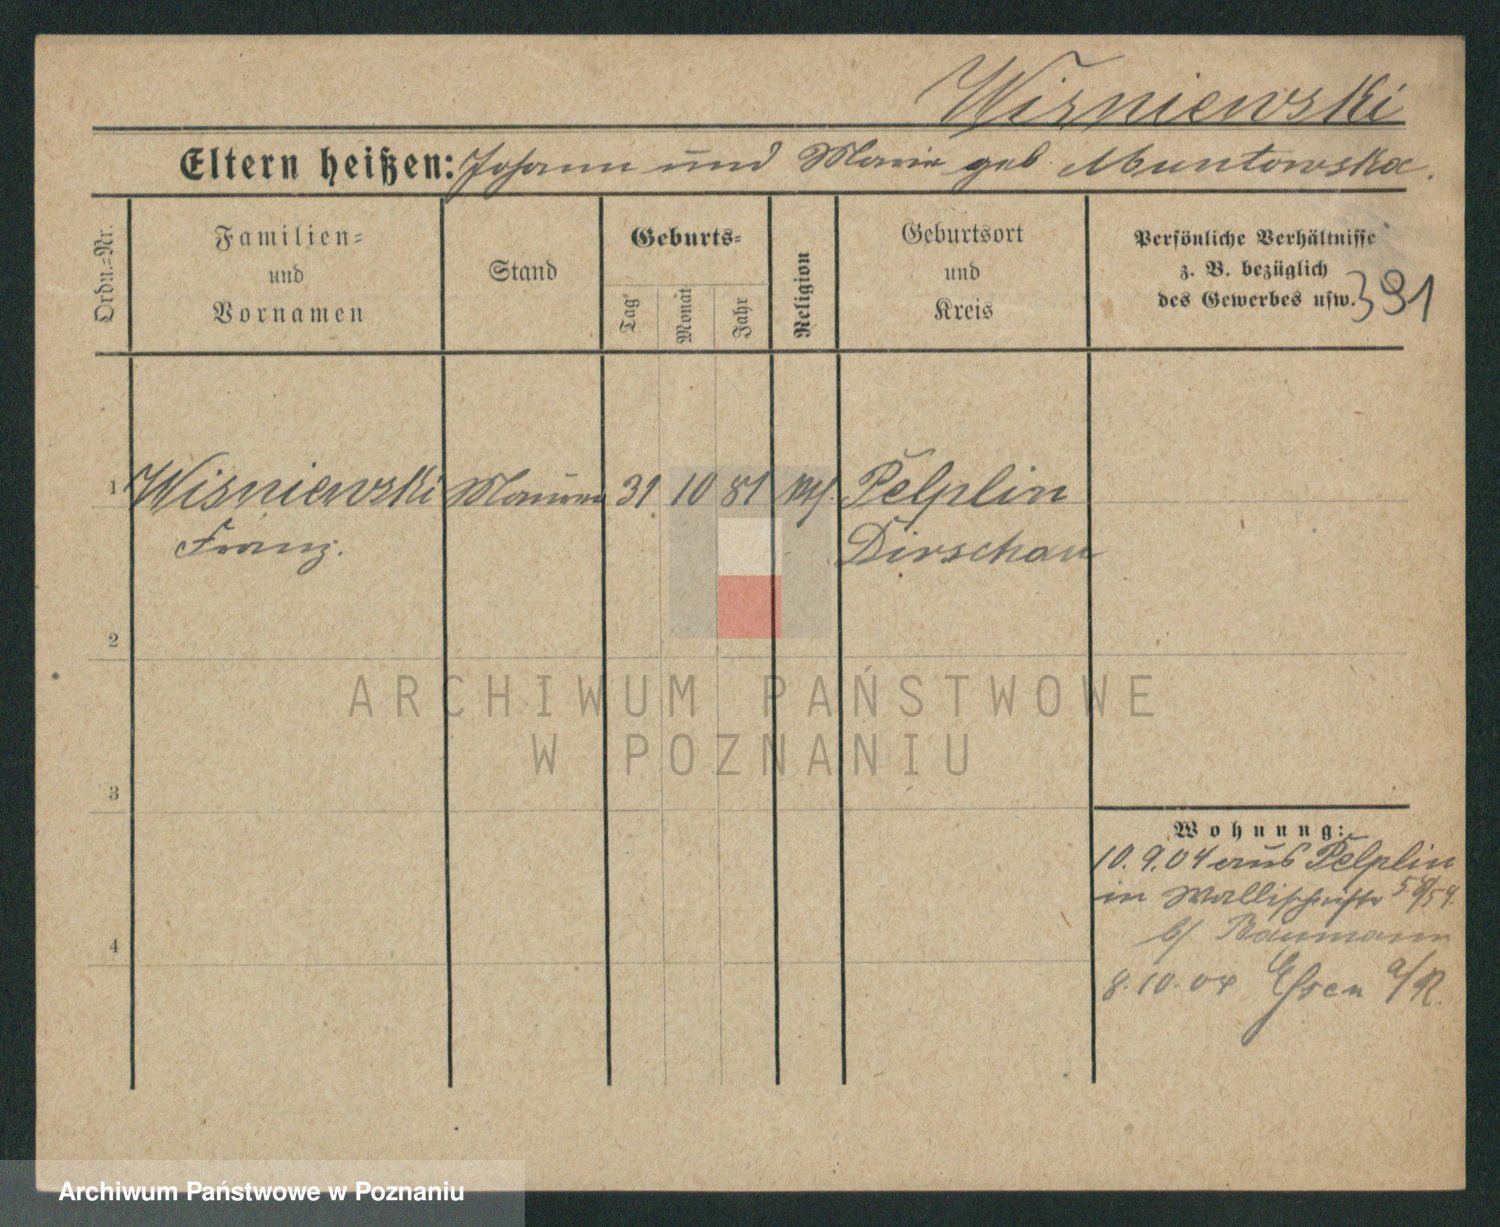 Wisniewski
Eltern heißen: Johann und Marie geb. Muntowska.
Ordn.-Nr.
Familien- und Vornamen
Stand
Geburts-
Tag
Monat
Jahr
Religion
Geburtsort und Kreis
Persönliche Verhältnisse
z. B. bezüglich
des Gewerbes usw.
391
1 Wisniewski Maurer 31 10 81 kth. Pelplin
Franz. Dirschau
2
ARCHIWUM PAŃSTWOWE
W POZNANIU
3
Wohnung:
10.9.04 aus Pelplin
in Wallischeistr 58/59.
b/ Baumann
4
8.10.04 Essen a/R.
Archiwum Państwowe w Poznaniu